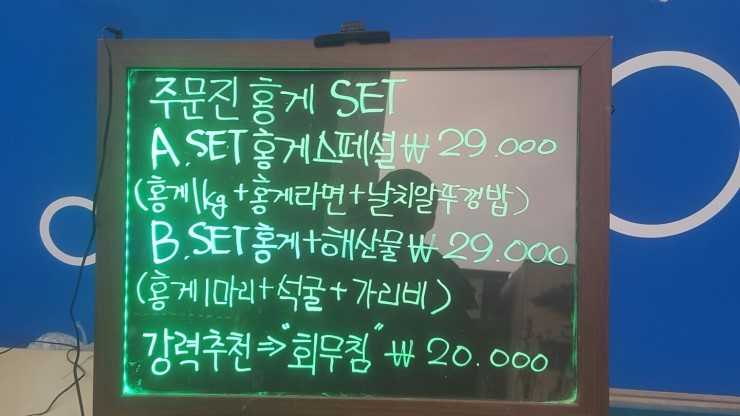 주문진 홍게 SET
A.SET 홍게스페셜 ₩ 29.000
(홍게1kg+홍게라면+날치알뚜껑밥)
B.SET 홍게+해산물 ₩ 29.000
(홍게1마리+석굴+가리비)
강력추천⇒"회무침" ₩ 20.000